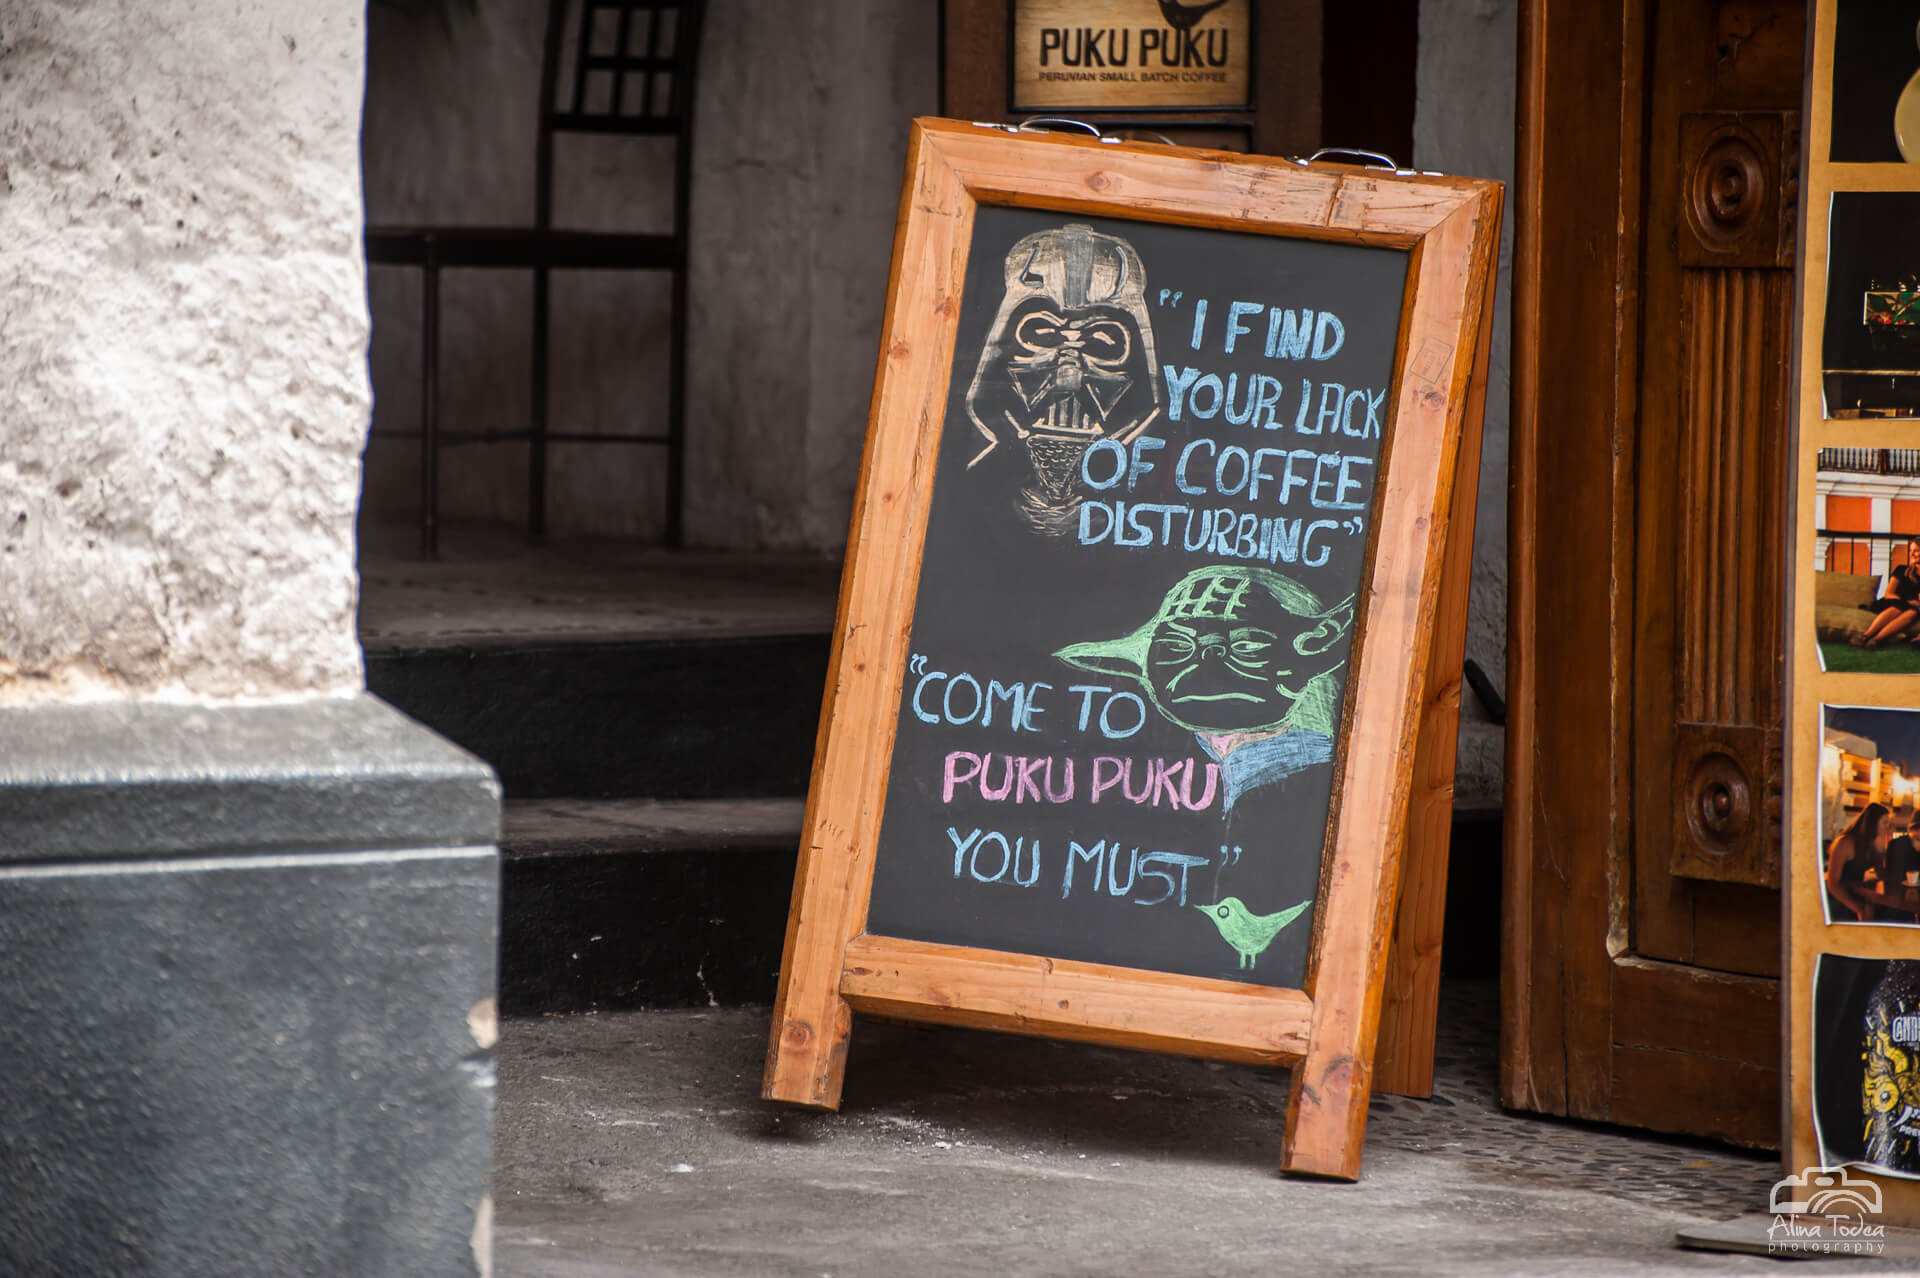 PUKU PUKU
PERUVIAN SMALL BATCH COFFEE
"I FIND
YOUR LACK
OF COFFEE
DISTURBING"
"COME TO
PUKU PUKU
YOU MUST"
Alina Todea
photography